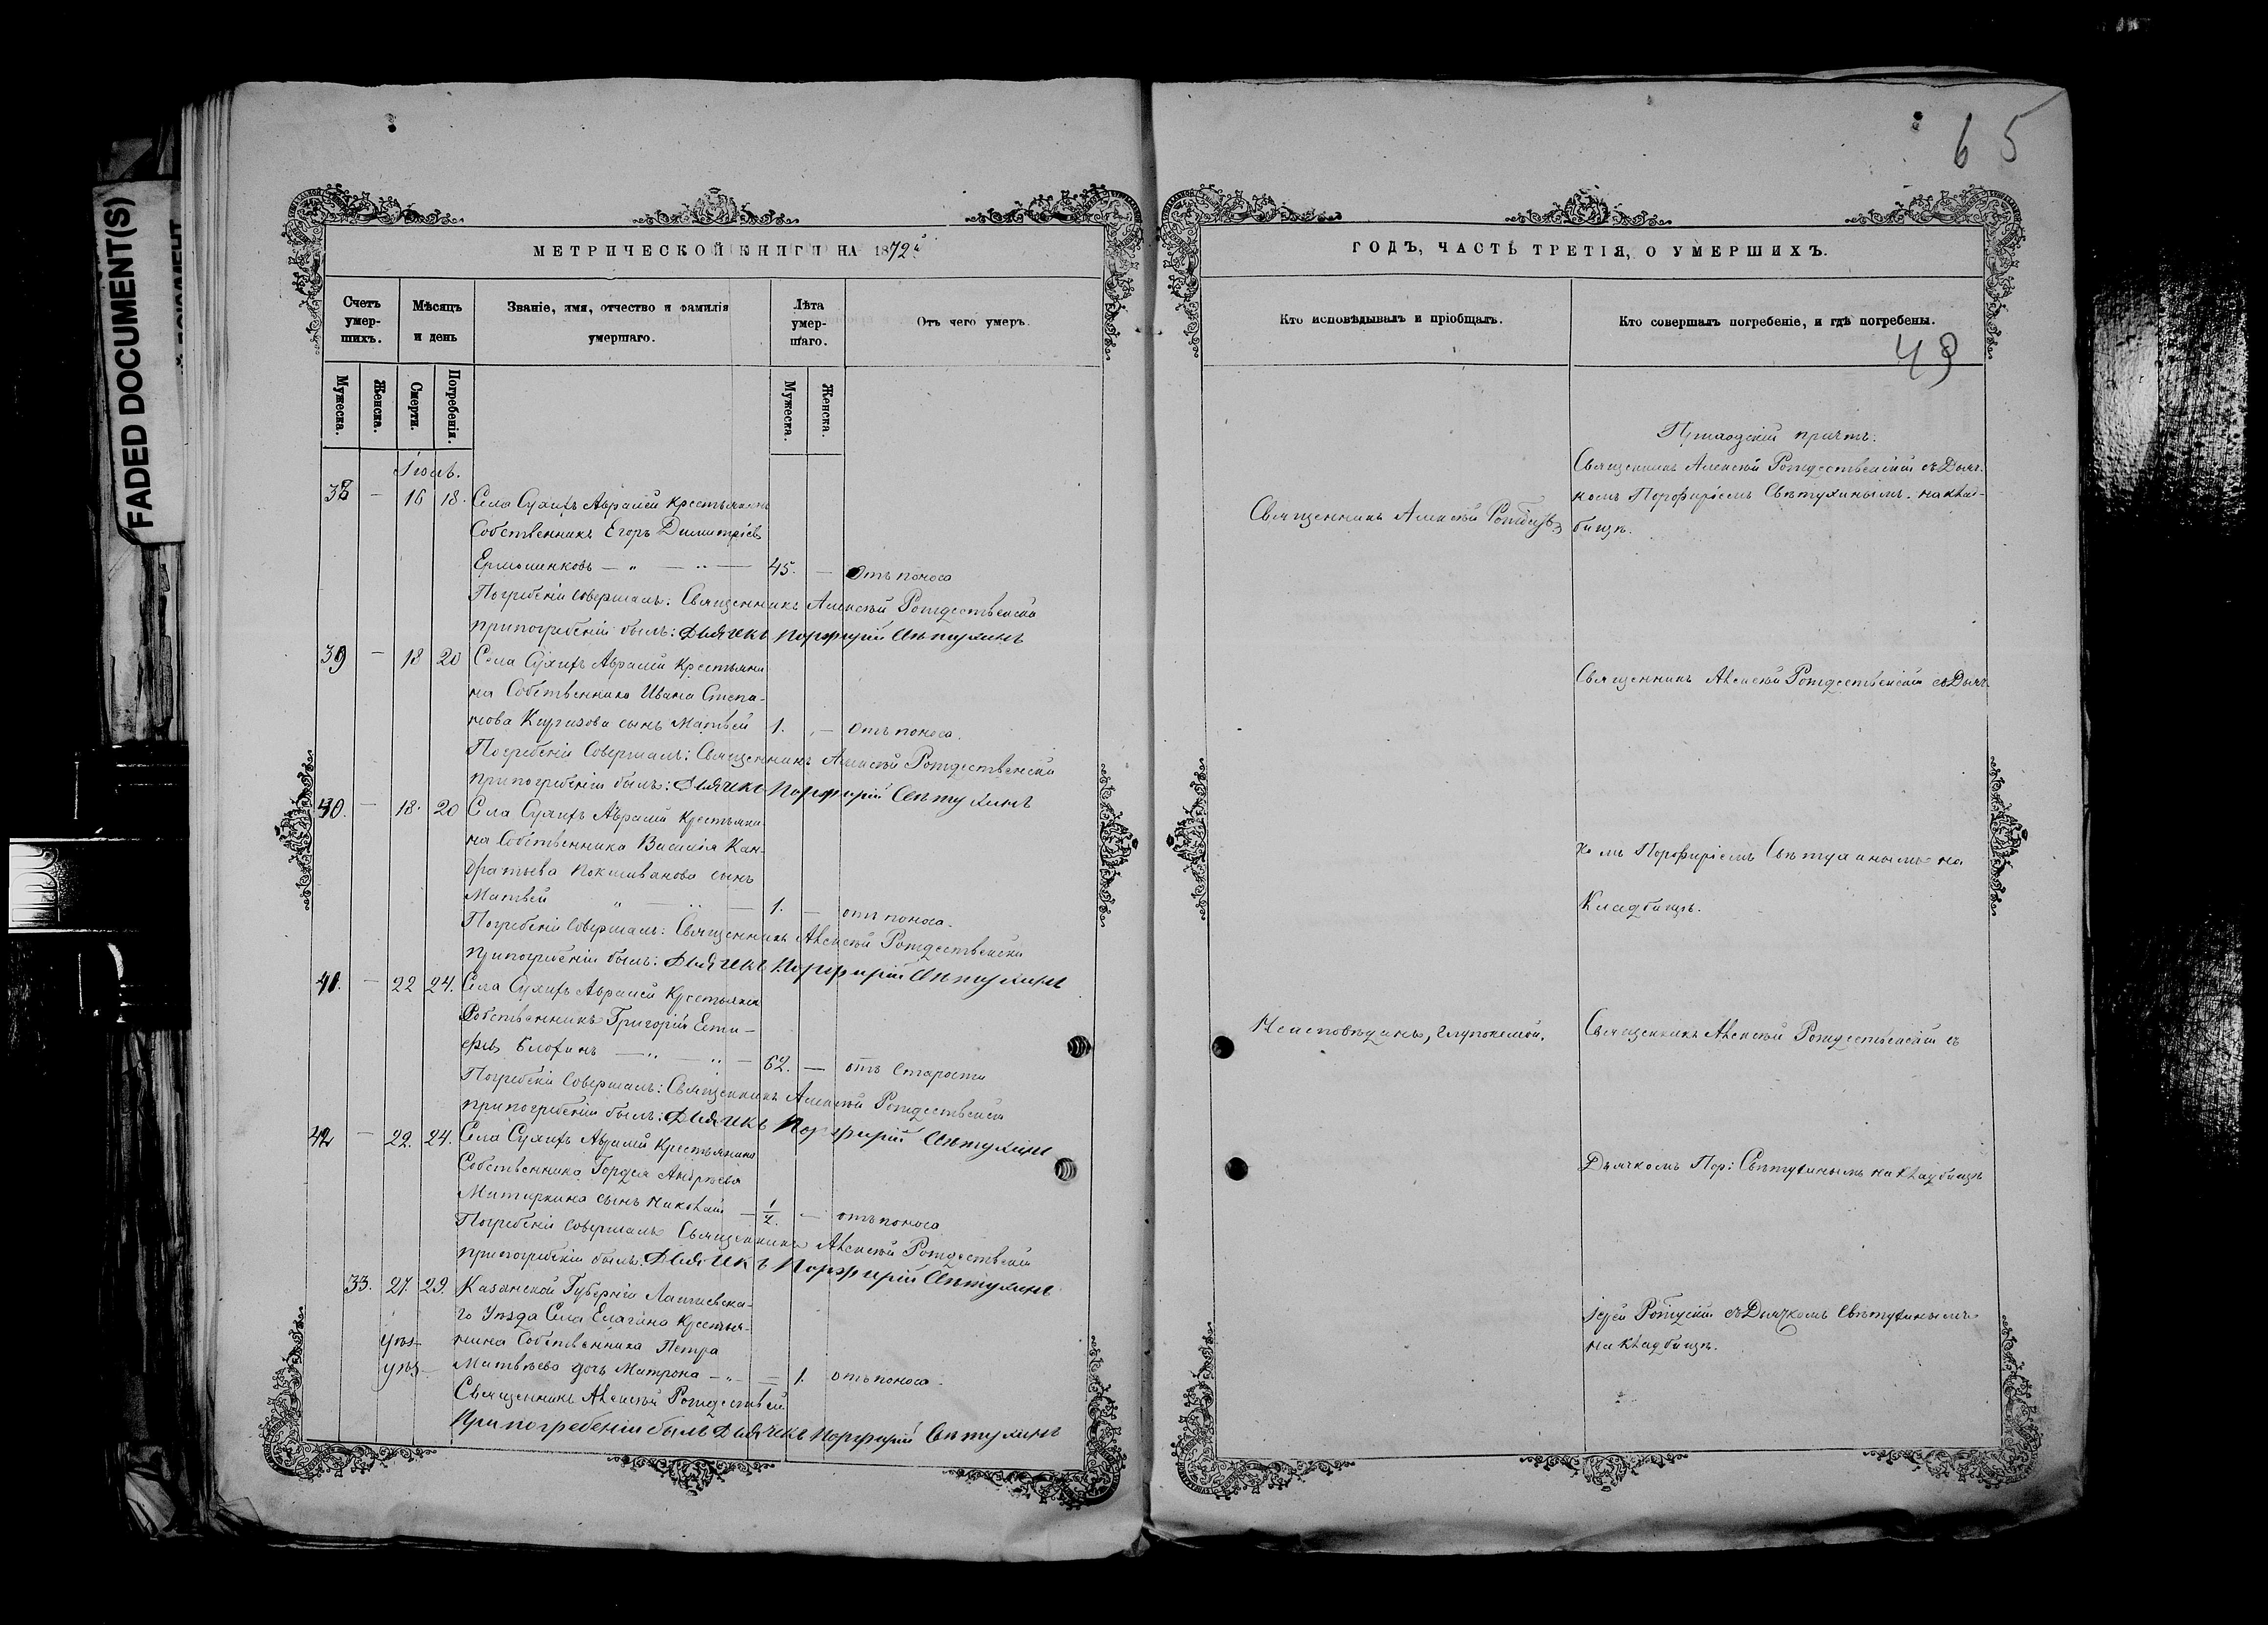 FADED DOCUMENT(S)
65
МЕТРИЧЕСКОЙ КНИГИ НА 1872й
Счетъ умершихъ.
Мѣсяцъ и день
Званіе, имя, отчество и фамилія умершаго.
Лѣта умершаго.
Отъ чего умеръ.
Мужеска.
Женска.
Смерти.
Погребенія.
Мужеска.
Женска.
Іюль.
38 — 16 18. Села Авралей крестьянинъ
Собственникъ Егоръ Димитріевъ
45. — Отъ поноса
Погребеніе совершалъ: Священникъ Алексѣй Рождественскій
при погребеніи былъ: Дьячекъ Порфирій Свѣтухинъ
39 — 18 20 Села Авралей Крестьяни
на Собственника Ивана Степа-
нова сынъ Матвѣй 1. — Отъ поноса.
Погребеніе Совершалъ: Священникъ Алексѣй Рождественскій
при погребеніи былъ: Дьячекъ Порфирій Свѣтухинъ
40. — 18. 20 Села Авралей Крестьяни
на Собственника Василія Кан-
дратьева сынъ
Матвѣй 1. — отъ поноса.
Погребеніе Совершалъ: Священникъ Алексѣй Рождественскій
при погребеніи былъ: Дьячекъ Порфирій Свѣтухинъ
41. — 22 24. Села Авралей Крестьянинъ
Собственникъ Григорій
62. — отъ Старости
Погребеніе Совершалъ: Священникъ Алексѣй Рождественскій
при погребеніи былъ: Дьячекъ Порфирій Свѣтухинъ
42 — 22. 24. Села Авралей Крестьянина
Собственника Гордея Андреева
сынъ Николай — 1/2. — отъ поноса
Погребеніе совершалъ Священникъ Алексѣй Рождественскій
при погребеніи былъ: Дьячекъ Порфирій Свѣтухинъ
33. 27. 29. Казанской Губерніи Лаишевска-
го Уѣзда Села Елагина Крестья-
нина Собственника Петра
Матвѣева дочь Матрона — 1. отъ поноса.
Священникъ Алексѣй Рождественскій
При погребеніи былъ Дьячекъ Порфирій Свѣтухинъ
ГОДЪ, ЧАСТЬ ТРЕТІЯ, О УМЕРШИХЪ.
Кто исповѣдывалъ и пріобщалъ.
Кто совершалъ погребеніе, и гдѣ погребены.
49
Приходскій причтъ.
Священникъ Алексѣй Рождественскій съ Дьяч-
комъ Порфиріемъ Свѣтухинымъ. на клад-
Священникъ Алексѣй
бищѣ.
Священникъ Алексѣй Рождественскій съ Дьяч-
комъ Порфиріемъ Свѣтухинымъ на
Кладбищѣ.
Неисповѣданъ, глухонемой.
Священникъ Алексѣй Рождественскій съ
Дьячкомъ Пор: Свѣтухинымъ на кладбищѣ
Іерей съ Дьячкомъ Свѣтухинымъ
на кладбищѣ.